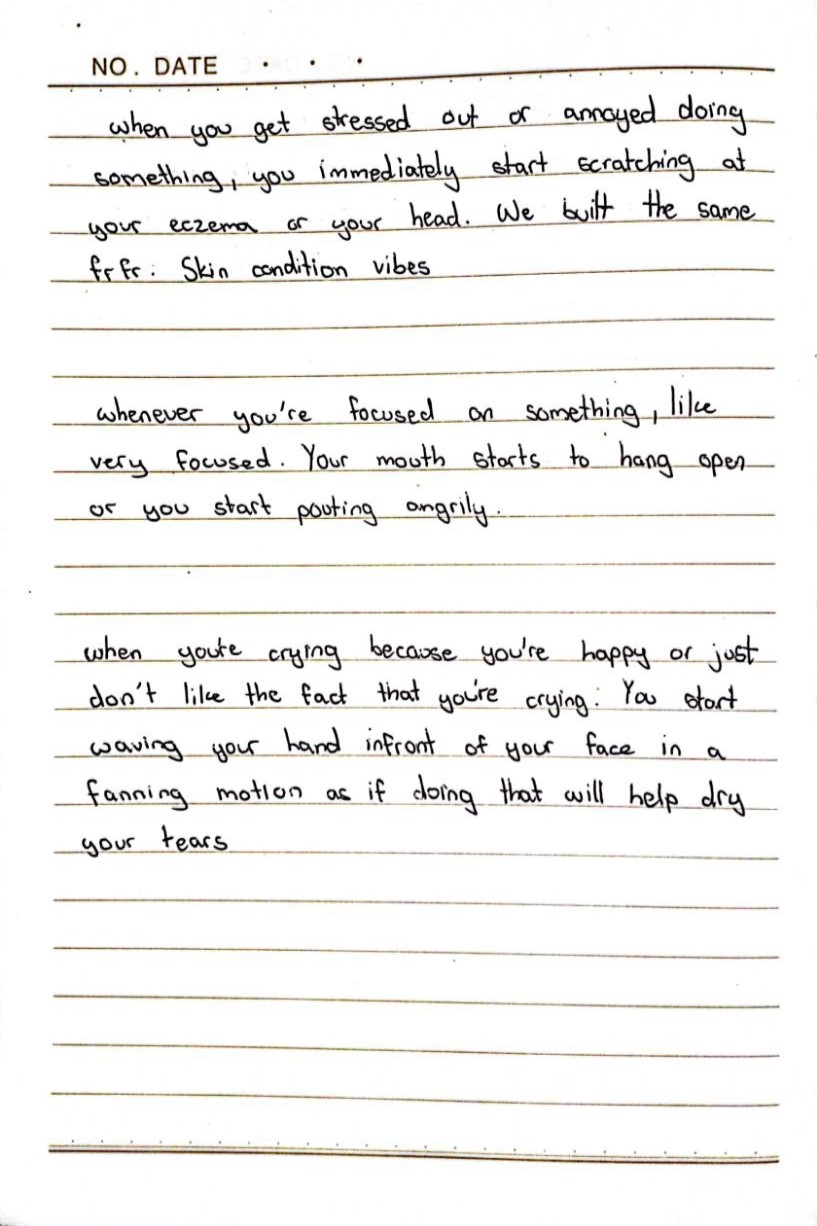 NO. DATE
when you get stressed out or annoyed doing
something, you immediately start scratching at
your eczema or your head. We built the same
frfr: Skin condition vibes
whenever you're focused on something, like
very focused. Your mouth starts to hang open
or you start pouting angrily.
when you're crying because you're happy or just
don't like the fact that you're crying: You start
waving your hand infront of your face in a
fanning motion as if doing that will help dry
your tears